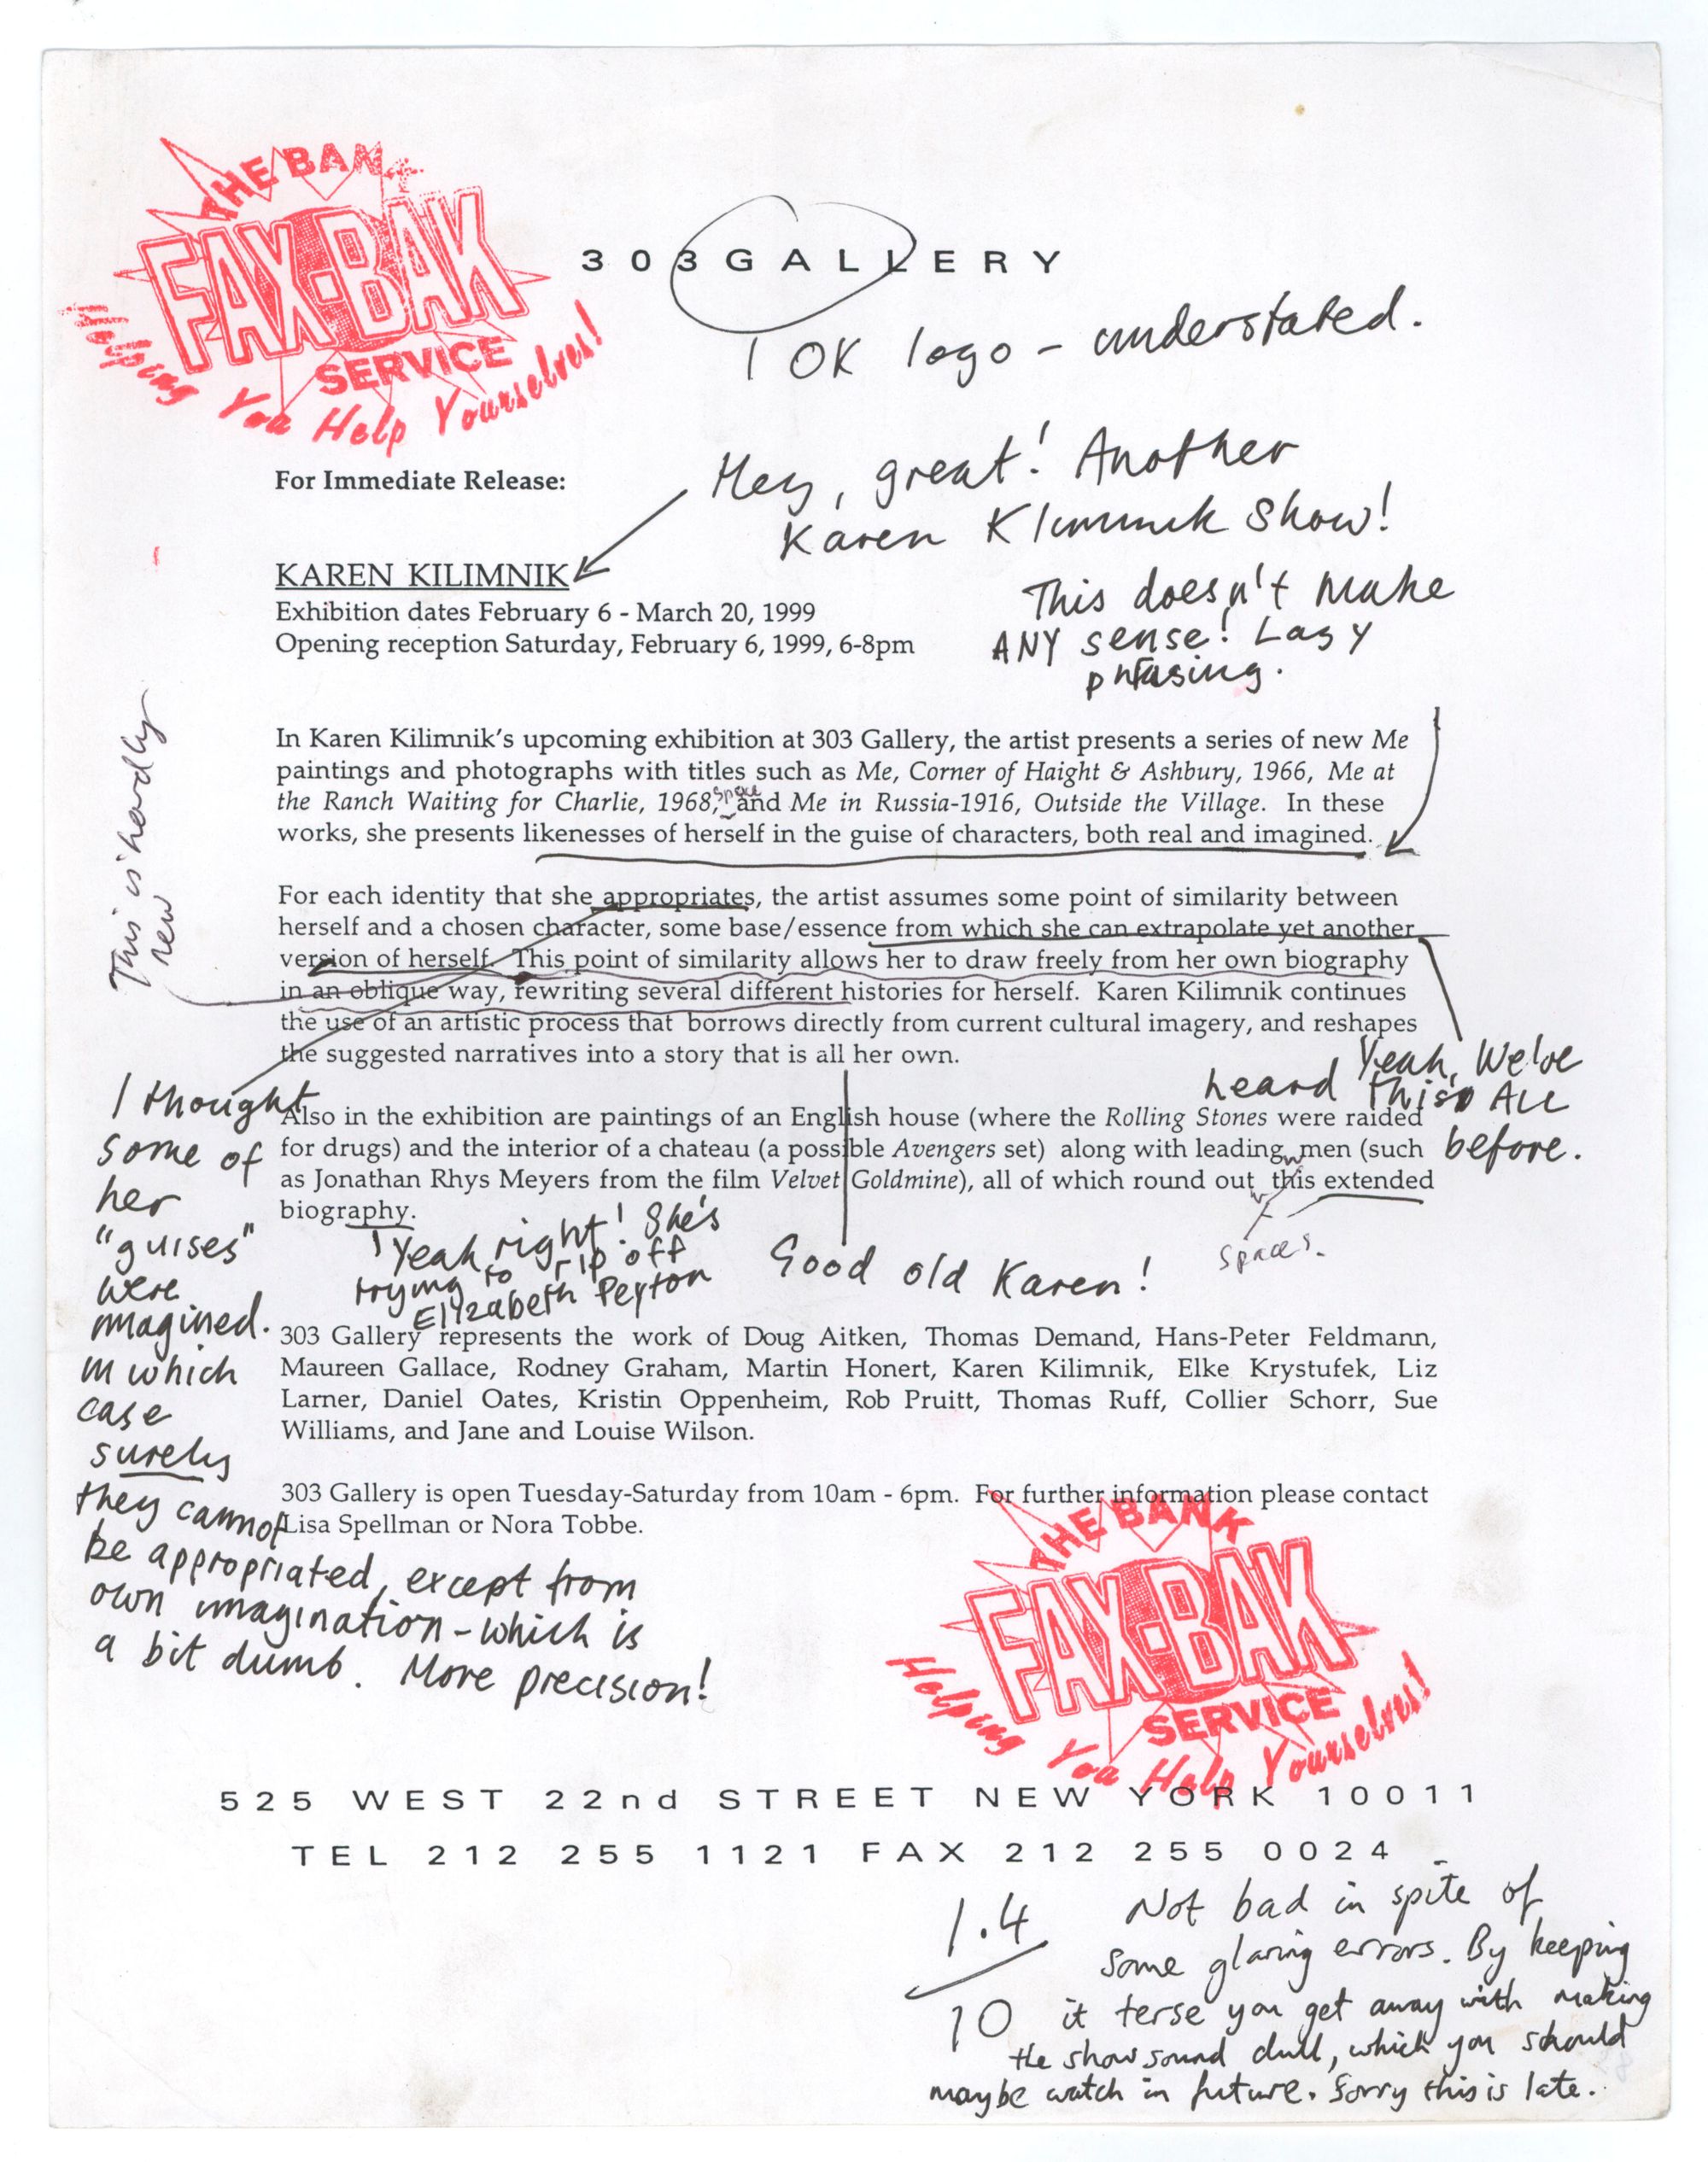 THE BANK
FAX-BAK
SERVICE
Helping You Help Yourselves!
303 GALLERY
OK logo - understated.
For Immediate Release:
Hey, great! Another
Karen Klimnik Show!
KAREN KILIMNIK
Exhibition dates February 6 - March 20, 1999
Opening reception Saturday, February 6, 1999, 6-8pm
This doesn't make
ANY sense! Lazy
phrasing.
In Karen Kilimnik's upcoming exhibition at 303 Gallery, the artist presents a series of new Me
paintings and photographs with titles such as Me, Corner of Haight & Ashbury, 1966, Me at
space
the Ranch Waiting for Charlie, 1968, and Me in Russia-1916, Outside the Village. In these
works, she presents likenesses of herself in the guise of characters, both real and imagined.
This is hardly
new
For each identity that she appropriates, the artist assumes some point of similarity between
herself and a chosen character, some base/essence from which she can extrapolate yet another
version of herself. This point of similarity allows her to draw freely from her own biography
in an oblique way, rewriting several different histories for herself. Karen Kilimnik continues
the use of an artistic process that borrows directly from current cultural imagery, and reshapes
the suggested narratives into a story that is all her own.
Yeah, We've
heard this ALL
before.
Also in the exhibition are paintings of an English house (where the Rolling Stones were raided
for drugs) and the interior of a chateau (a possible Avengers set) along with leading men (such
as Jonathan Rhys Meyers from the film Velvet Goldmine), all of which round out this extended
biography.
Yeah right! She's
trying to rip off
Elizabeth Peyton
Good old Karen!
spaces.
I thought
some of
her
"guises"
were
imagined.
in which
case
surely
they cannot
be appropriated, except from
own imagination - which is
a bit dumb. More precision!
303 Gallery represents the work of Doug Aitken, Thomas Demand, Hans-Peter Feldmann,
Maureen Gallace, Rodney Graham, Martin Honert, Karen Kilimnik, Elke Krystufek, Liz
Larner, Daniel Oates, Kristin Oppenheim, Rob Pruitt, Thomas Ruff, Collier Schorr, Sue
Williams, and Jane and Louise Wilson.
303 Gallery is open Tuesday-Saturday from 10am - 6pm. For further information please contact
Lisa Spellman or Nora Tobbe.
THE BANK
FAX-BAK
SERVICE
Helping You Help Yourselves!
525 WEST 22nd STREET NEW YORK 10011
TEL 212 255 1121 FAX 212 255 0024
1.4
10
Not bad in spite of
some glaring errors. By keeping
it terse you get away with making
the show sound dull, which you should
maybe watch in future. Sorry this is late.